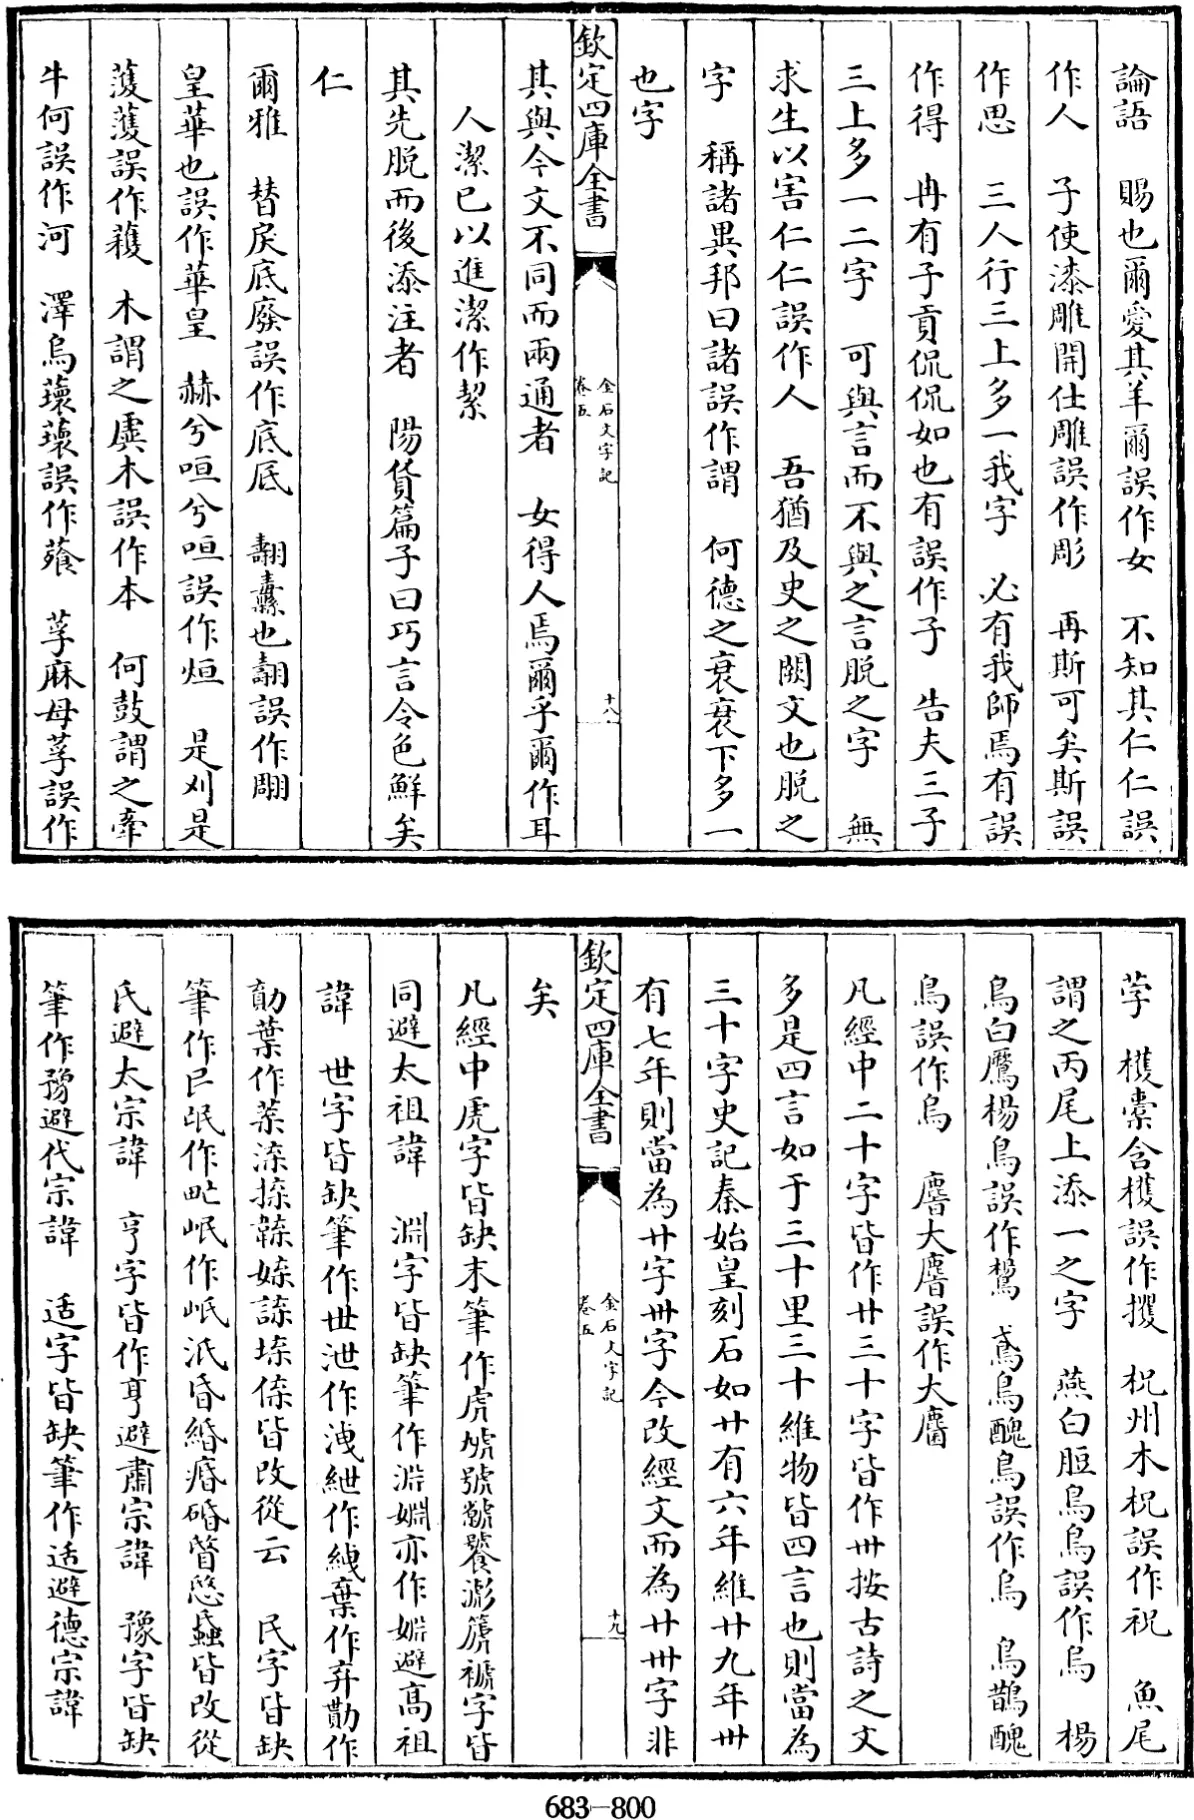 論語　賜也爾愛其羊爾誤作女　不知其仁仁誤
作人　子使漆雕開仕雕誤作彫　再斯可矣斯誤
作思　三人行三上多一我字　必有我師焉有誤
作得　冉有子貢侃侃如也有誤作子　告夫三子
三上多一二字　可與言而不與之言脱之字　無
求生以害仁仁誤作人　吾猶及史之闕文也脱之
字　稱諸異邦曰諸誤作謂　何德之衰衰下多一
也字
欽定四庫全書
金石文字記
卷五
十八
其與今文不同而兩通者　女得人焉爾乎爾作耳
人潔已以進潔作絜
其先脱而後添注者　陽貨篇子曰巧言令色鮮矣
仁
爾雅　替戾底廢誤作底厎　翿纛也翿誤作翢
皇華也誤作華皇　赫兮咺兮咺誤作烜　是刈是
濩濩誤作穫　木謂之虡木誤作本　何鼓謂之牽
牛何誤作河　澤烏蘾蘾誤作薞　荸麻母荸誤作
莩　檴橐含檴誤作擭　杬州木杬誤作杬　魚尾
謂之丙尾上添一之字　燕白脰烏烏誤作鳥　楊
鳥白鷹楊鳥誤作鸉　鳶烏醜烏誤作鳥　烏鵲醜
烏誤作鳥　麐大麐誤作大麕
凡經中二十字皆作廿三十字皆作卅按古詩之文
多是四言如于三十里三十維物皆四言也則當為
三十字史記秦始皇刻石如廿有六年維廿九年卅
有七年則當為廿字卅字今改經文而為廿卅字非
欽定四庫全書
金石文字記
卷五
十九
矣
凡經中虎字皆缺末筆作虎號虢虩饕滮箎褫字皆
同避太祖諱　淵字皆缺筆作渊婣亦作婣避高祖
諱　世字皆缺筆作世泄作洩紲作絏棄作弃勩作
勩葉作枼渫揲韘媟諜堞偞皆改從云　民字皆缺
筆作民氓作甿岷作岷泯昏緡痻碈暋愍蟁皆改從
氏避太宗諱　亨字皆作亨避肅宗諱　豫字皆缺
筆作豫避代宗諱　适字皆缺筆作适避德宗諱
683—800